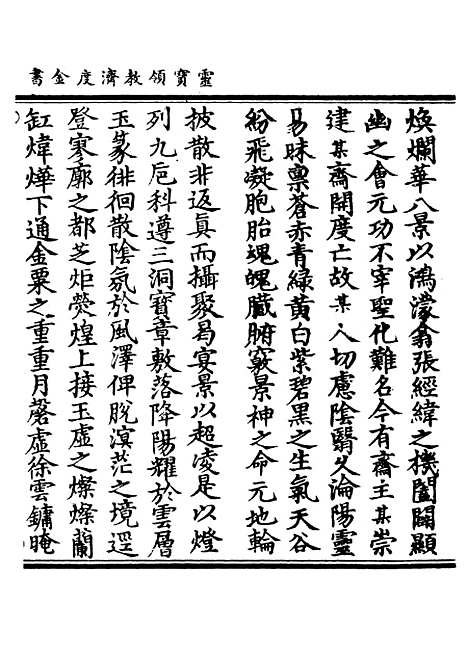 靈寶領教濟度金書
煥爛華八景以鴻濛翕張經緯之機闔闢顯
幽之會元功不宰聖化難名今有齋主某崇
建某齋開度亡故某人切慮陰翳久淪陽靈
易昧稟蒼赤青綠黃白紫碧黑之生氣天谷
紛飛凝胞胎魂魄臟腑竅景神之命元地輪
披散非返真而攝聚曷宴景以超凌是以燈
列九巵科遵三洞寶章敷落降陽耀於雲層
玉篆徘徊散陰氛於風澤俾脫溟茫之境逕
登寥廓之都芝炬熒煌上接玉虛之燦燦蘭
缸煒燁下通金粟之重重月磬虛徐雲鏞晻